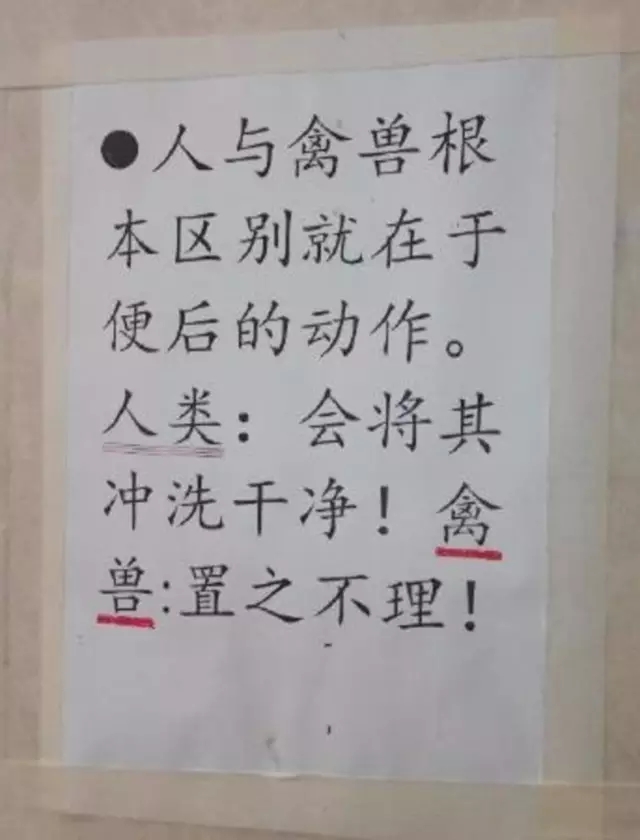 ●人与禽兽根
本区别就在于
便后的动作。
人类：会将其
冲洗干净！禽
兽:置之不理！